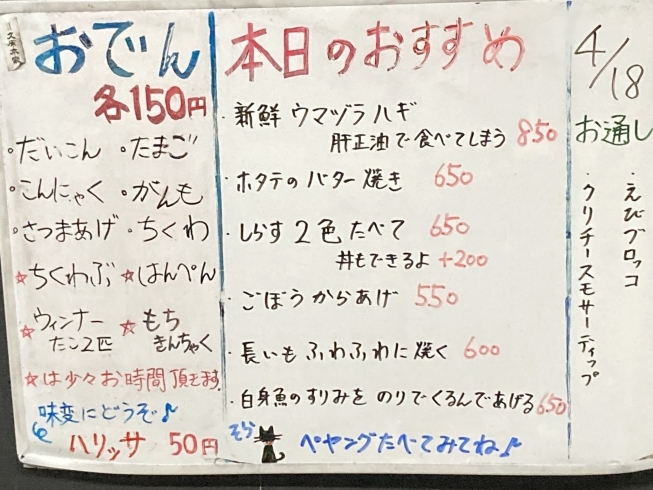 久保本家
おでん
各150円
・だいこん ・たまご
・こんにゃく ・がんも
・さつまあげ ・ちくわ
☆ちくわぶ ☆はんぺん
☆ウィンナー
たこ2匹
☆もち
きんちゃく
☆は少々お時間頂きます
味変にどうぞ♪
ハリッサ 50円
本日のおすすめ
・新鮮 ウマヅラハギ
肝正油で食べてしまう 850
・ホタテのバター焼き 650
・しらす2色たべて 650
丼もできるよ +200
・ごぼうからあげ 550
・長いもふわふわに焼く 600
・白身魚のすりみをのりでくるんであげる 650
そら
ペヤングたべてみてね♪
4/18
お通し
・えびブロッコ
・クリチーズモサーディップ